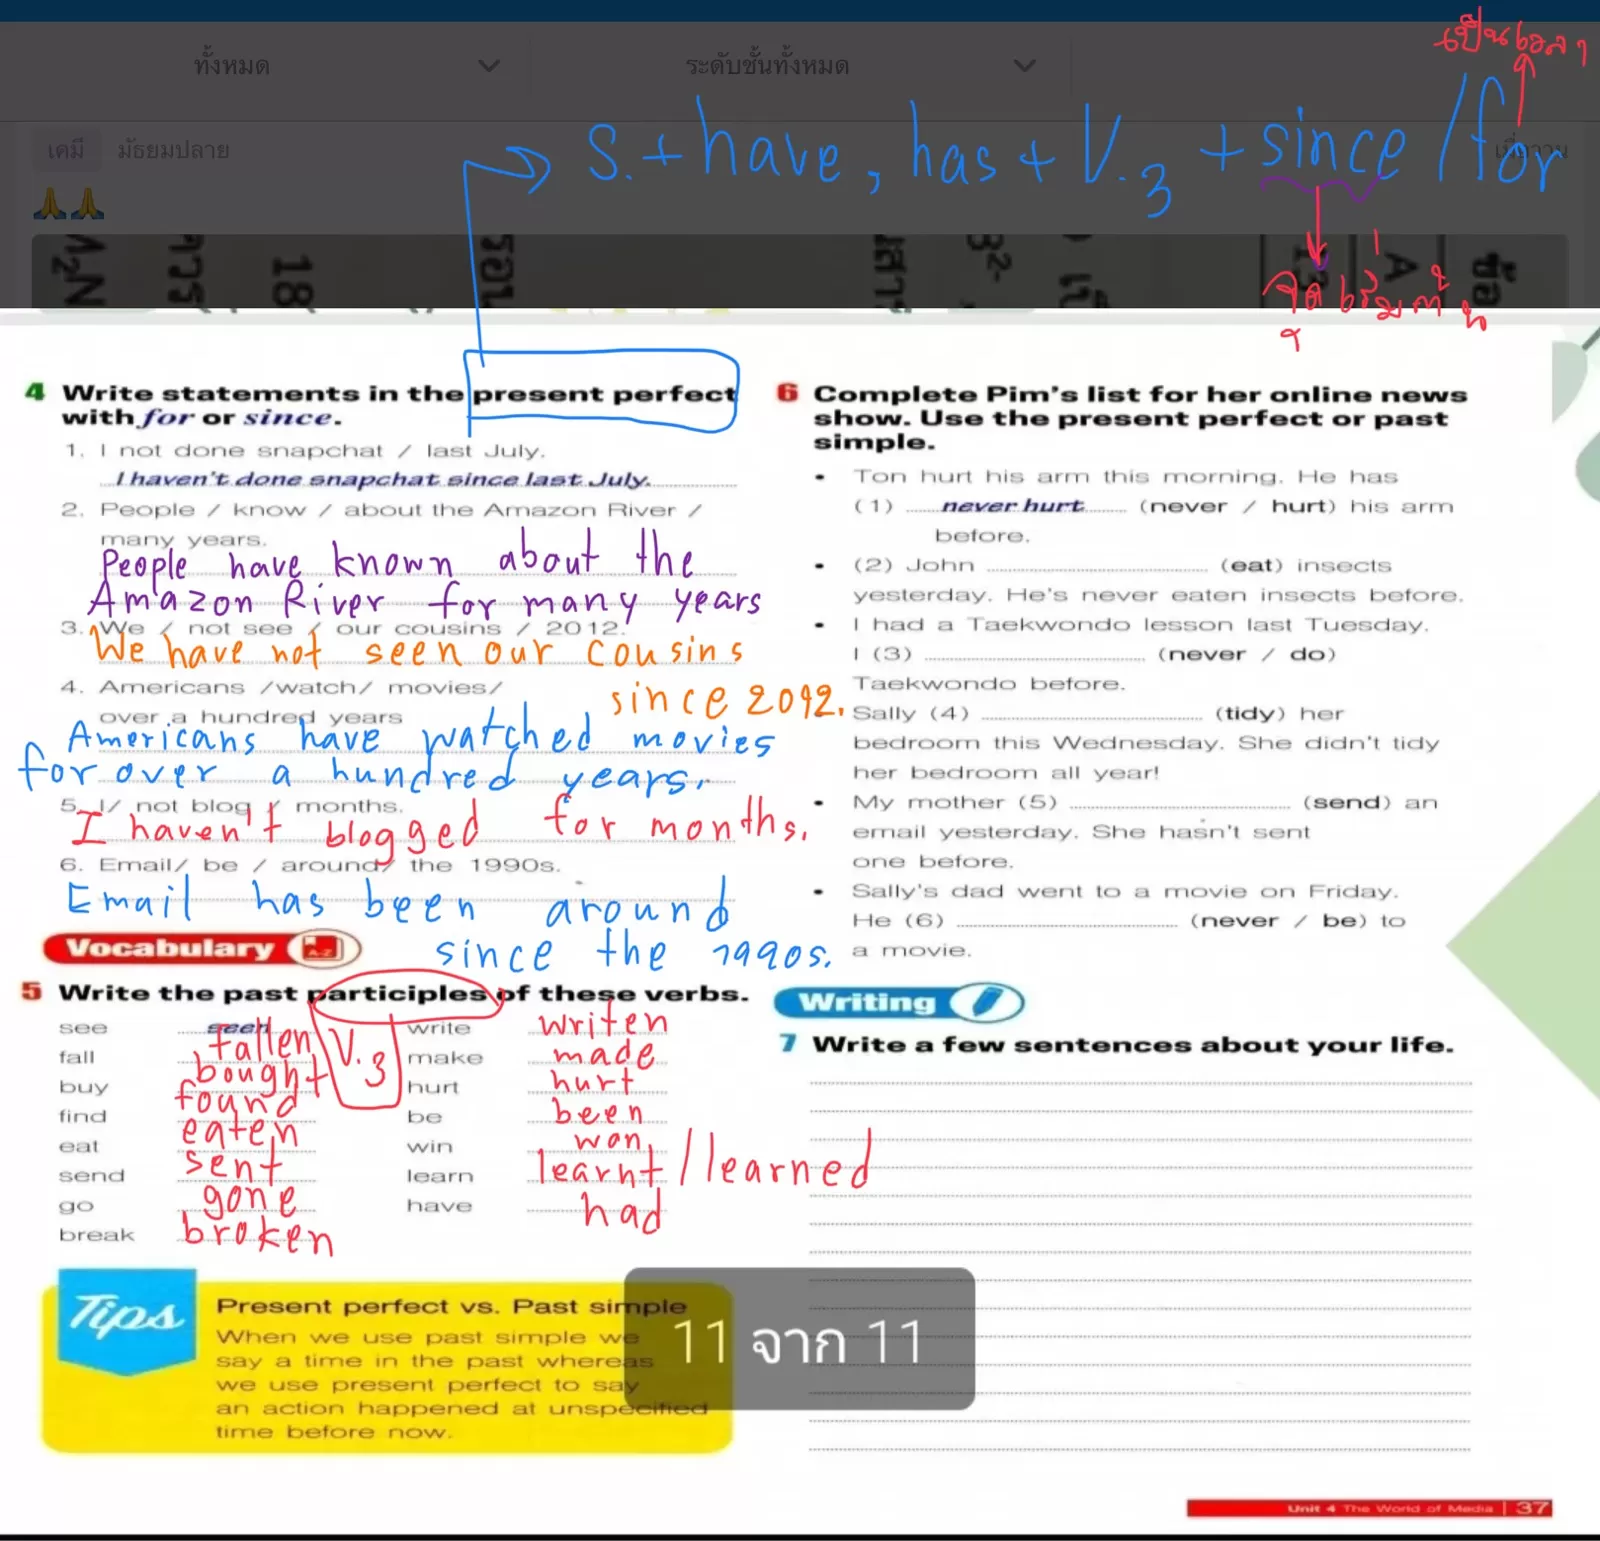 เป็นเวลา
ทั้งหมด
ระดับชั้นทั้งหมด
S. + have, has + V.3 + since / for
เคมี
มัธยมปลาย
🙏🙏
จุดเริ่มต้น
4 Write statements in the present perfect
with for or since.
1. I not done snapchat / last July.
I haven't done snapchat since last July.
2. People / know / about the Amazon River /
many years.
People have known about the
Amazon River for many years
3. We / not see / our cousins / 2012.
We have not seen our cousins
since 2012.
4. Americans /watch/ movies/
over a hundred years
Americans have watched movies
for over a hundred years.
5. I/ not blog / months.
I haven't blogged for months.
6. Email/ be / around/ the 1990s.
Email has been around
since the 1990s.
Vocabulary A-Z
5 Write the past participles of these verbs.
V.3
see seen
fall fallen
buy bought
find found
eat eaten
send sent
go gone
break broken
write writen
make made
hurt hurt
be been
win won
learn learnt / learned
have had
Tips
Present perfect vs. Past simple
When we use past simple we
say a time in the past whereas
we use present perfect to say
an action happened at unspecified
time before now.
6 Complete Pim's list for her online news
show. Use the present perfect or past
simple.
• Ton hurt his arm this morning. He has
(1) never hurt (never / hurt) his arm
before.
• (2) John (eat) insects
yesterday. He's never eaten insects before.
• I had a Taekwondo lesson last Tuesday.
I (3) (never / do)
Taekwondo before.
Sally (4) (tidy) her
bedroom this Wednesday. She didn't tidy
her bedroom all year!
• My mother (5) (send) an
email yesterday. She hasn't sent
one before.
• Sally's dad went to a movie on Friday.
He (6) (never / be) to
a movie.
Writing
7 Write a few sentences about your life.
11 จาก 11
Unit 4 The World of Media | 37